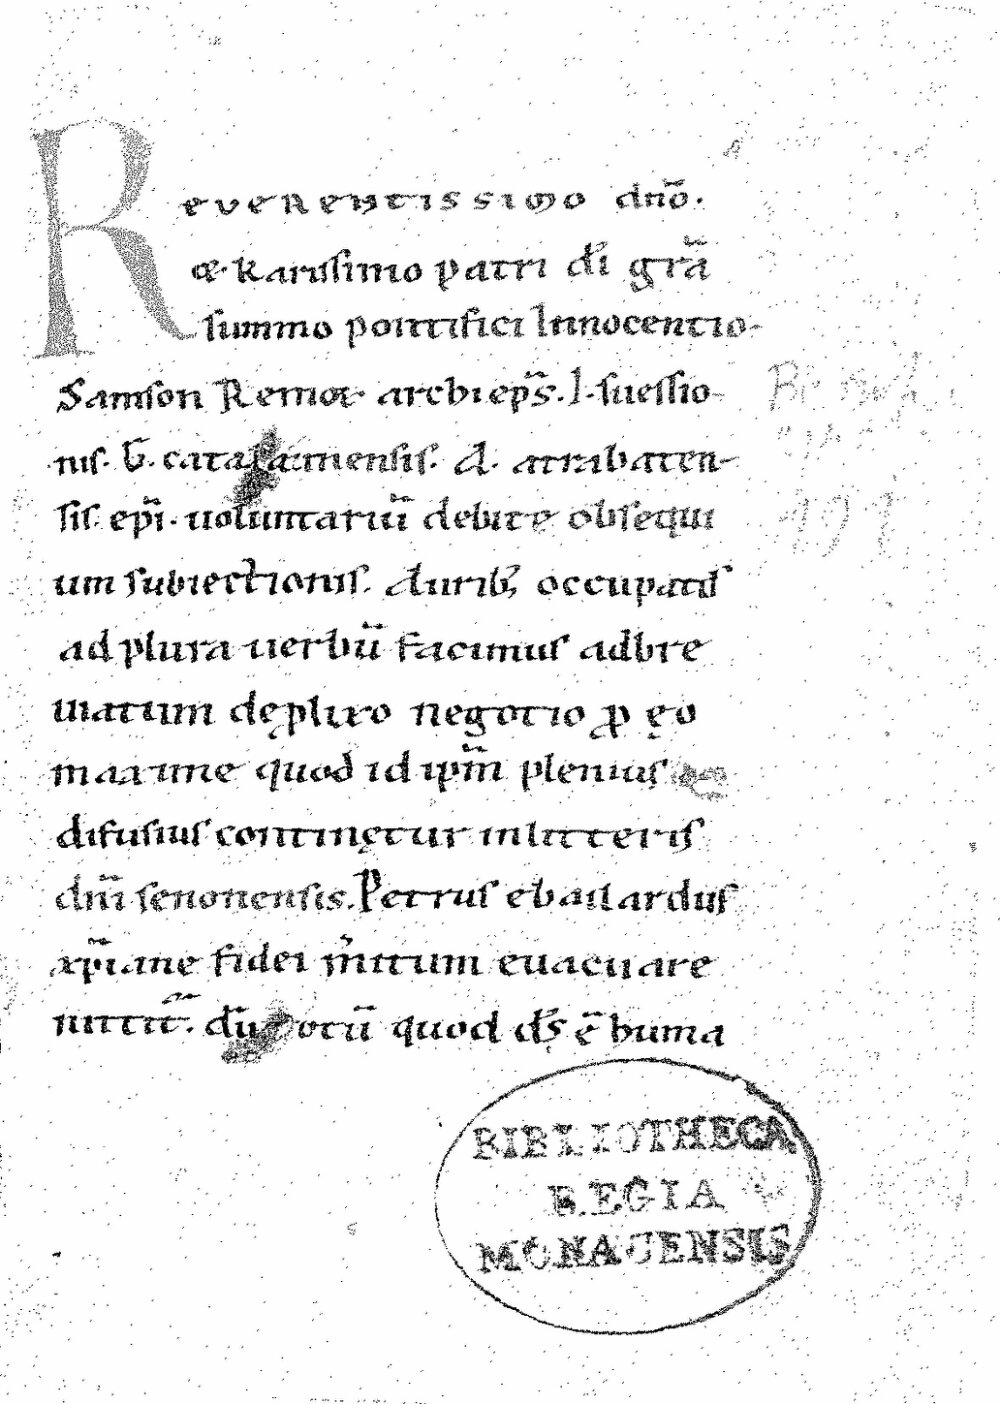 Reverentissimo dn̄o.
& karissimo patri dī gr̄a
summo pontifici Innocentio
Samson Remoꝝ archiep̄s. I. suessio
nis. G. catalaunensis. A. atrabaten-
sis. ep̄i. uoluntariū debite obsequi
um subiectionis. Aurib; occupatis
ad plura uerbū facimus adbre
uiatum deplixo negotio ꝑ eo
maxime quod id ip̄m plenius
difusius continętur inlitteris
dn̄i senonensis. Petrus ebailardus
xp̄iane fidei m̄itum euacuare
nititͬ. dū totū quod ds̄ ē huma
BIBLIOTHECA
REGIA
MONACENSIS